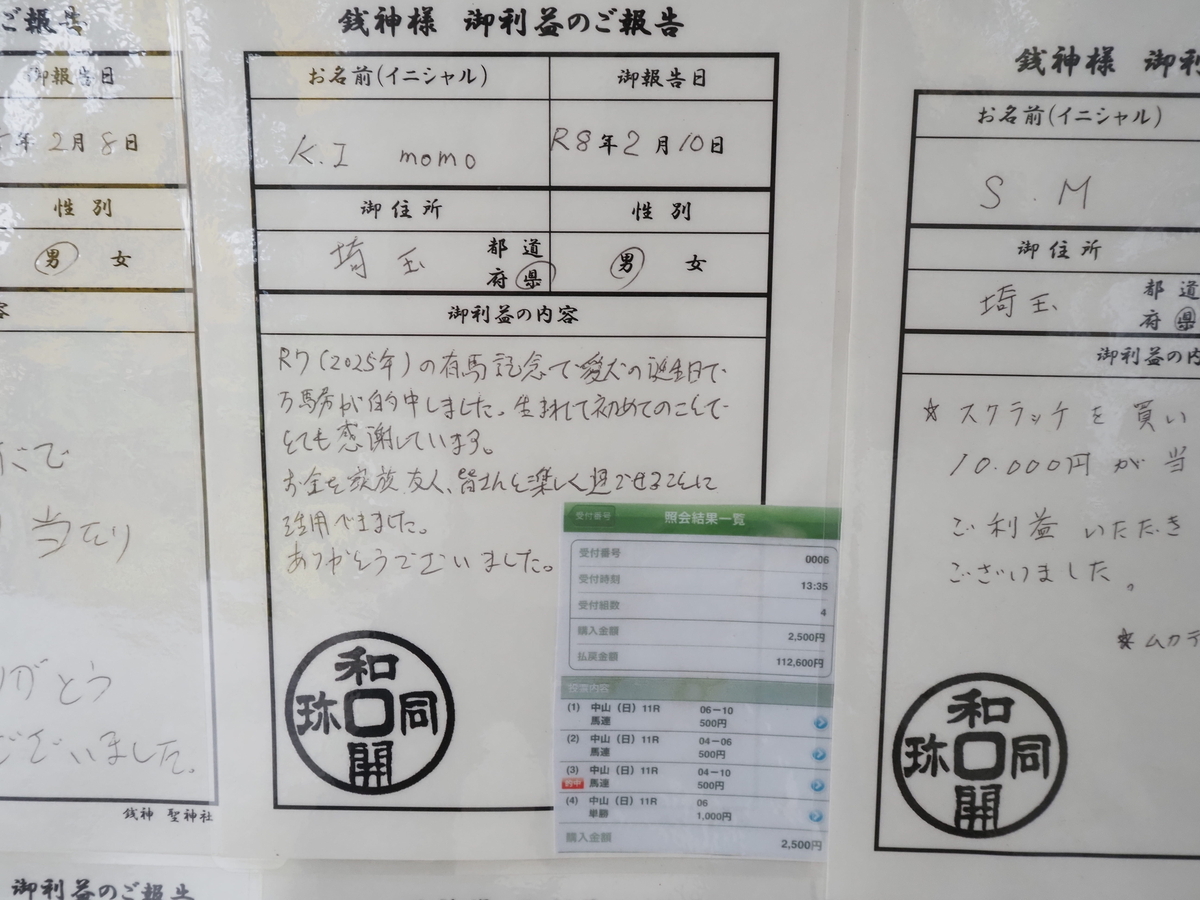 ご報告
御報告日
年 2月 8日
性 別
男 女
容
当たり
りがとう
ございました。
銭神 聖神社
銭神様 御利益のご報告
お名前(イニシャル)
御報告日
K.I momo
R8年2月10日
御住所
性 別
埼玉
都 道
府 県
男 女
御利益の内容
R7(2025年)の有馬記念で愛犬の誕生日で
万馬券が的中しました。生まれて初めてのことで
とても感謝しています。
お金を家族、友人、皆さんと楽しく過ごせることに
活用できました。
ありがとうございました。
和同開珎
受付番号
照会結果一覧
受付番号 0006
受付時刻 13:35
受付組数 4
購入金額 2,500円
払戻金額 112,600円
投票内容
(1) 中山(日)11R 06-10
馬連 500円
(2) 中山(日)11R 04-06
馬連 500円
(3) 中山(日)11R 04-10
的中 馬連 500円
(4) 中山(日)11R 06
単勝 1,000円
購入金額 2,500円
銭神様 御利
お名前(イニシャル)
S.M
御住所
埼玉
都 道
府 県
御利益の内
☆スクラッチを買い
10.000円が当
ご利益いただき
ございました。
☆ムカデ
和同開珎
御利益のご報告